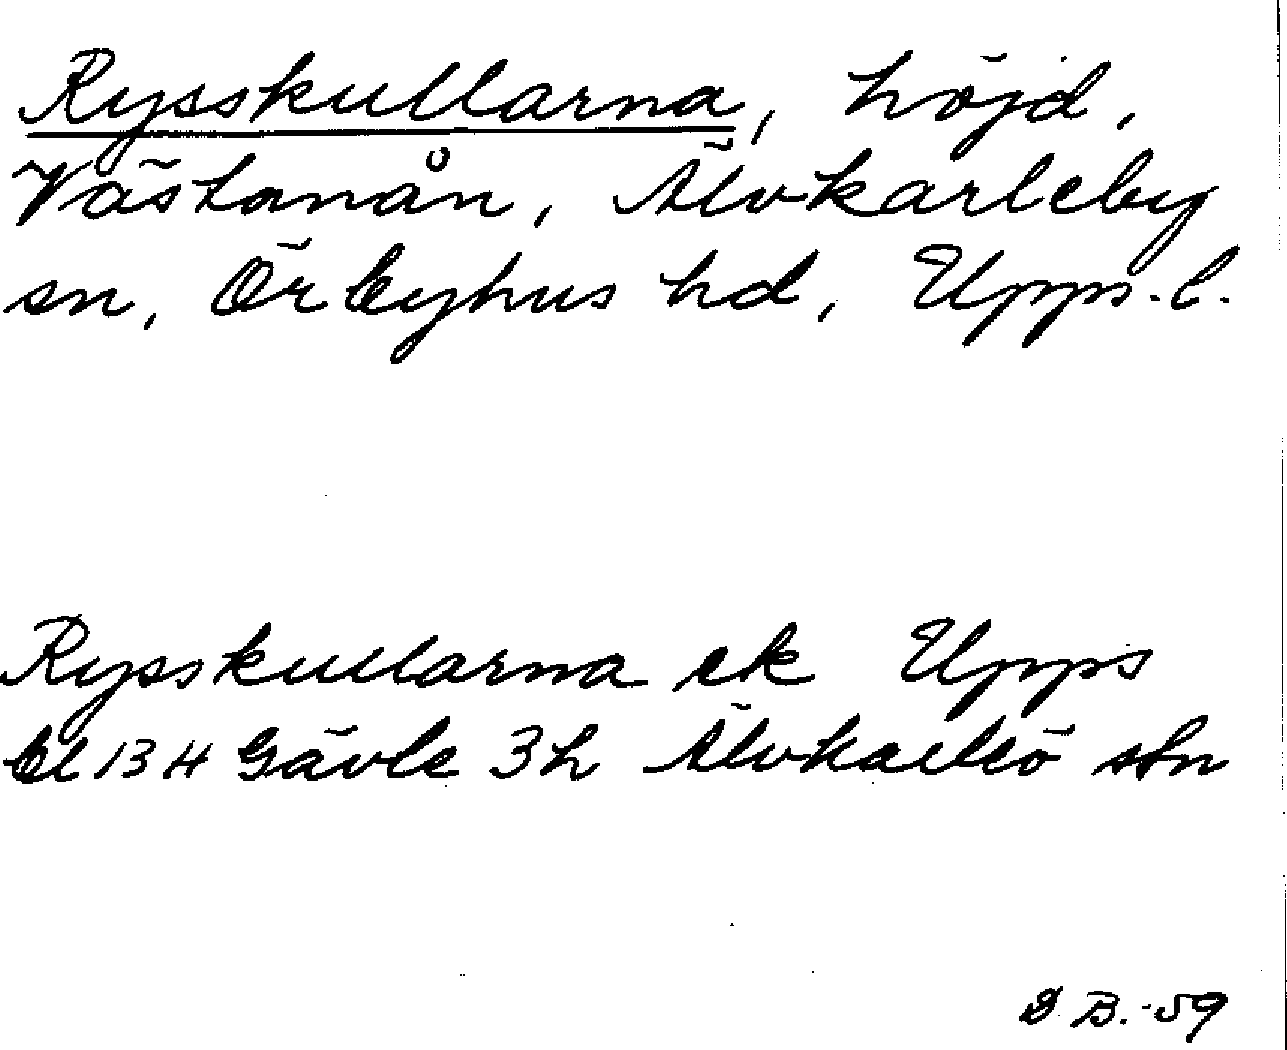 Rysskullarna, höjd,
Västanån, Älvkarleby
sn, Örbyhus hd, Upps. l.
Rysskullarna ek Upps
bl 134 Gävle 3h Älvkarleö stn
B.-59